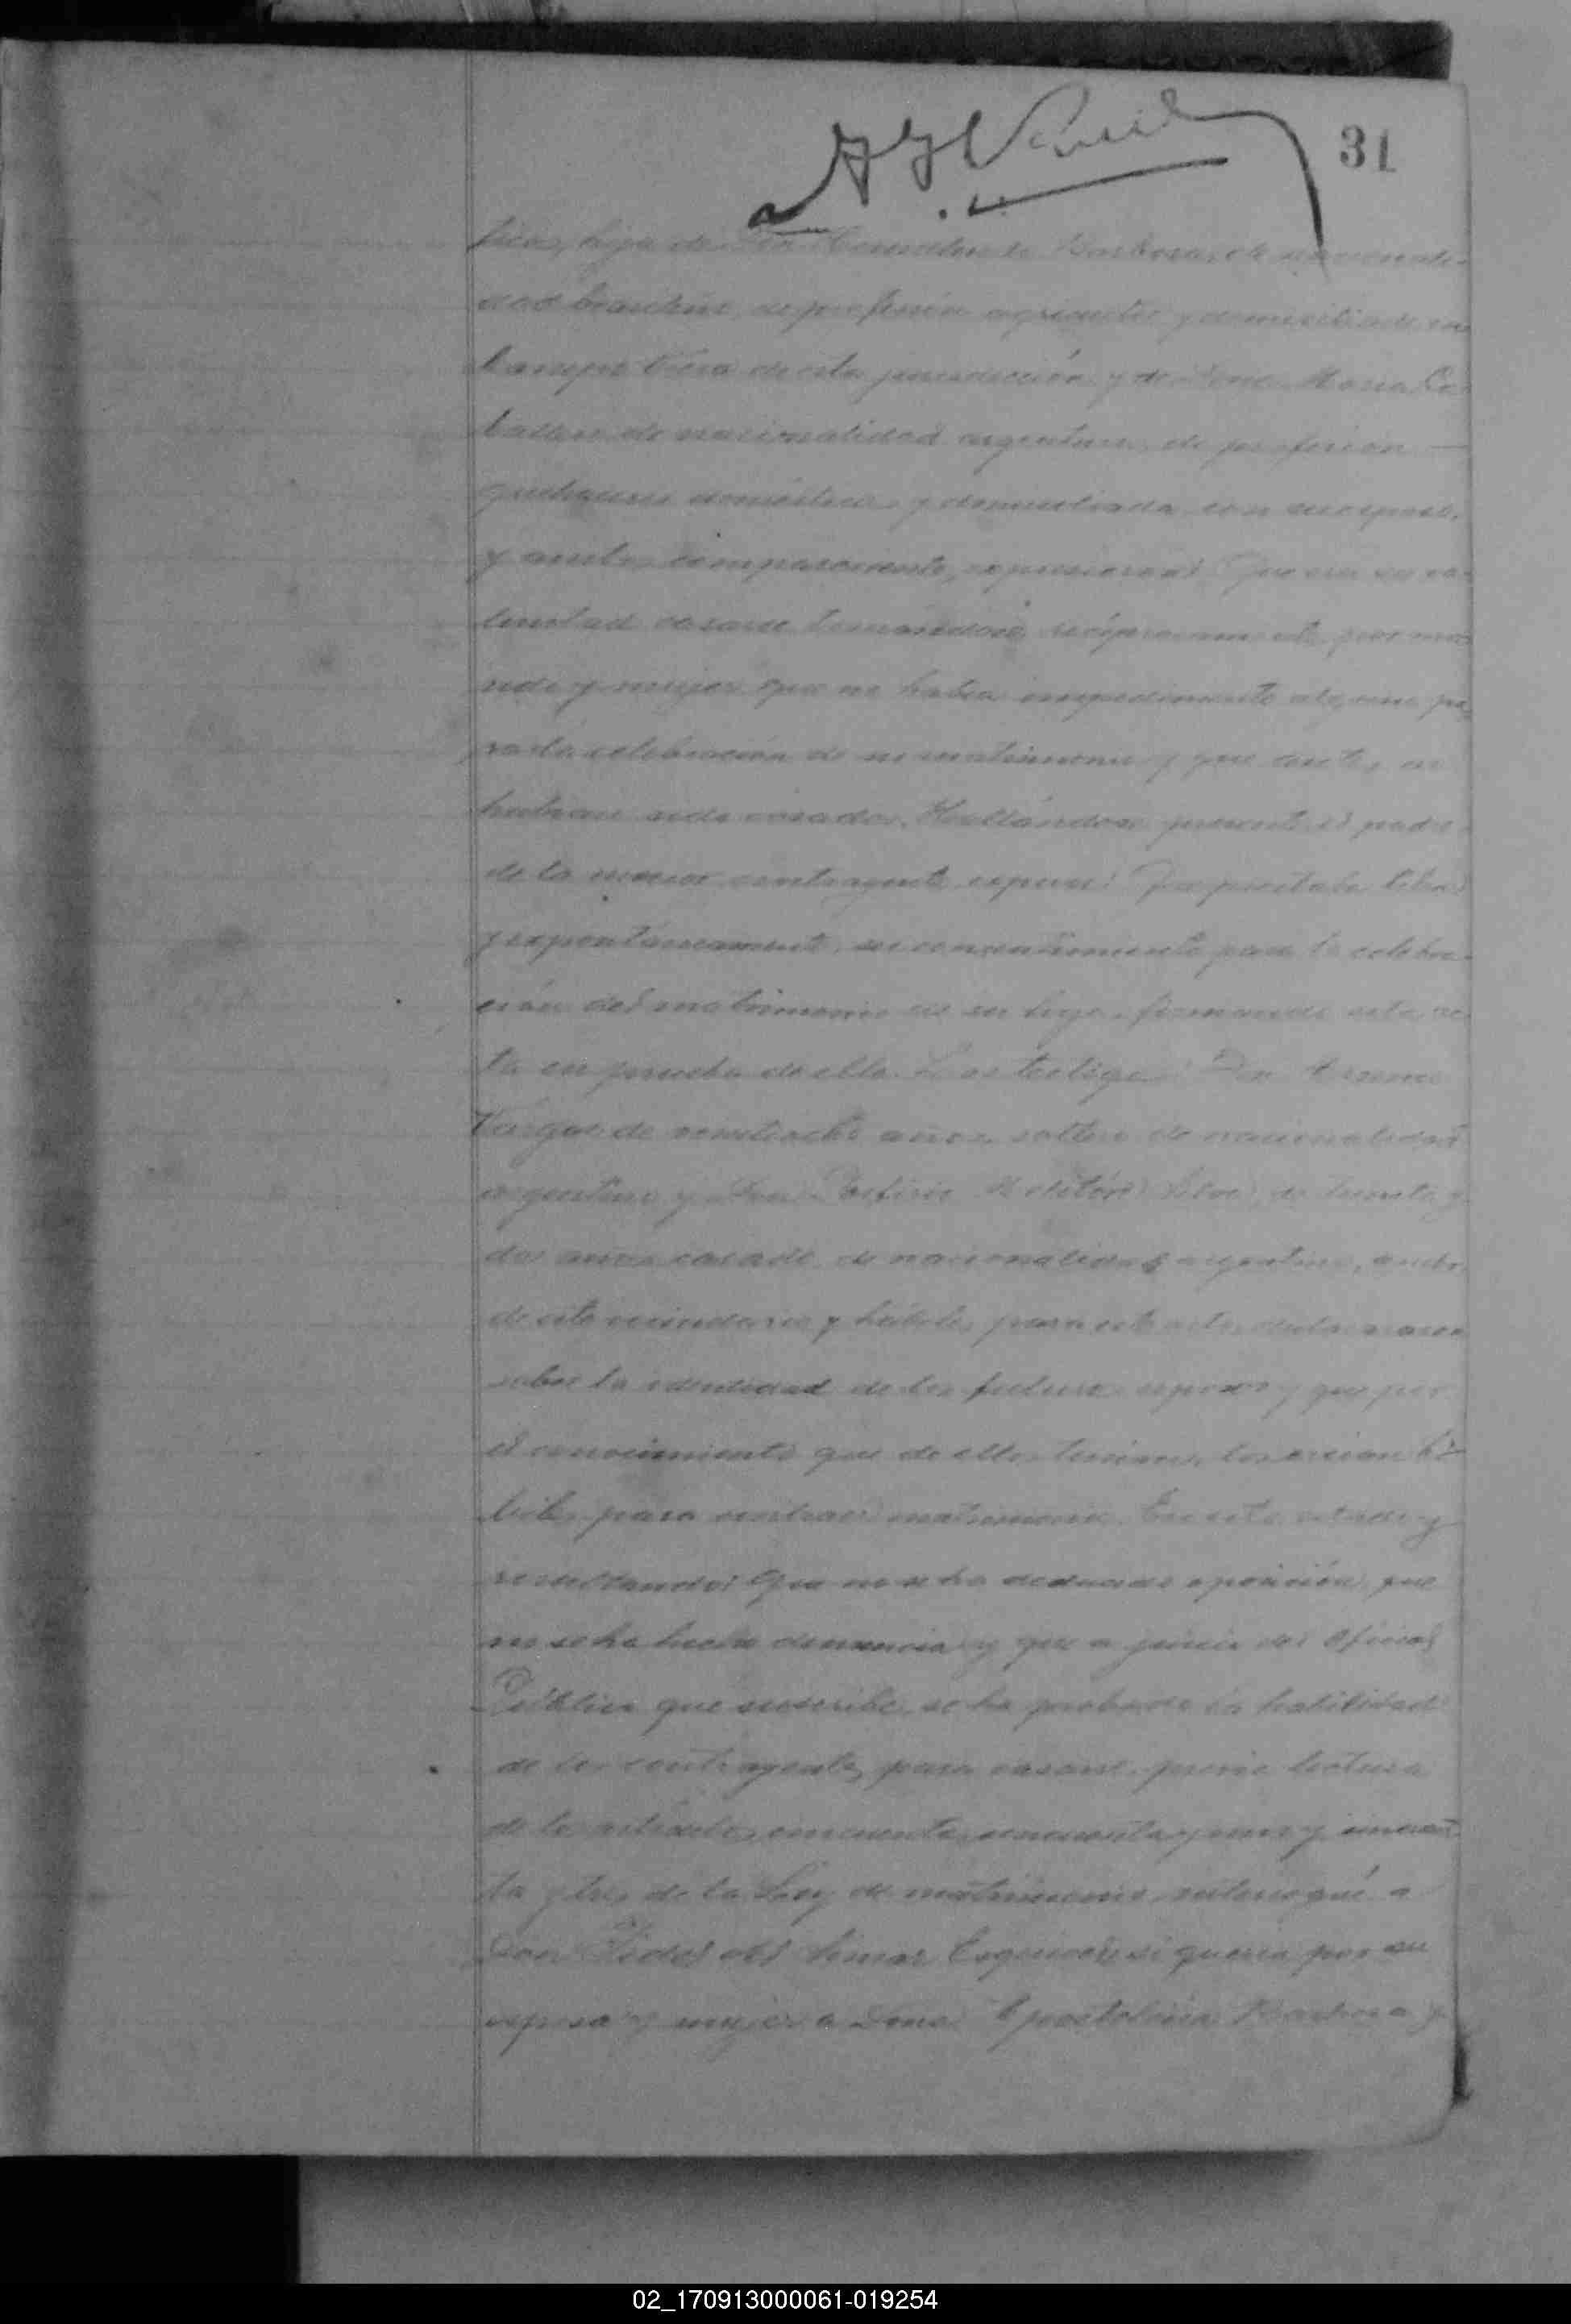 31
ticos, hija de Don Barbosa, de nacionali-
dad brasilero, de profesión agricultor y domiciliado en
Campo Viera de esta jurisdicción y de Doña María Ce-
ballos de nacionalidad argentina, de profesión
quehaceres domésticos y domiciliada con su esposo,
y ambos comparecientes, expresaron: Que era su vo-
luntad casarse tomándose recíprocamente por ma-
rido y mujer que no había impedimento alguno pa-
ra la celebración de su matrimonio y que antes no
habían sido casados. Hallándose presente el padre
de la menor contrayente expuso: Que prestaba libre
y expontáneamente su consentimiento para la celebra-
ción del matrimonio de su hija, firmando esta ac-
ta en prueba de ello. Los testigos: Don
Vargas de veintiocho años soltero de nacionalidad
argentino y Don Porfirio Melitón Silva, de treinta y
dos años casado de nacionalidad argentino, ambos
de este vecindario y hábiles para este acto, declararon
sobre la identidad de los futuros esposos y que por
el conocimiento que de ellos tenían, los creían há-
biles para contraer matrimonio. En este estado y
resultando: Que no se ha deducido oposición, que
no se ha hecho denuncia y que a juicio del Oficial
Público que suscribe, se ha probado la habilidad
de los contrayentes para casarse, previa lectura
de los artículos cincuenta, cincuenta y uno y cincuen-
ta y tres de la Ley de matrimonio, interrogué a
Don Fidel del si quería por su
esposa y mujer a Doña Apostolina Barbosa y
02_170913000061-019254